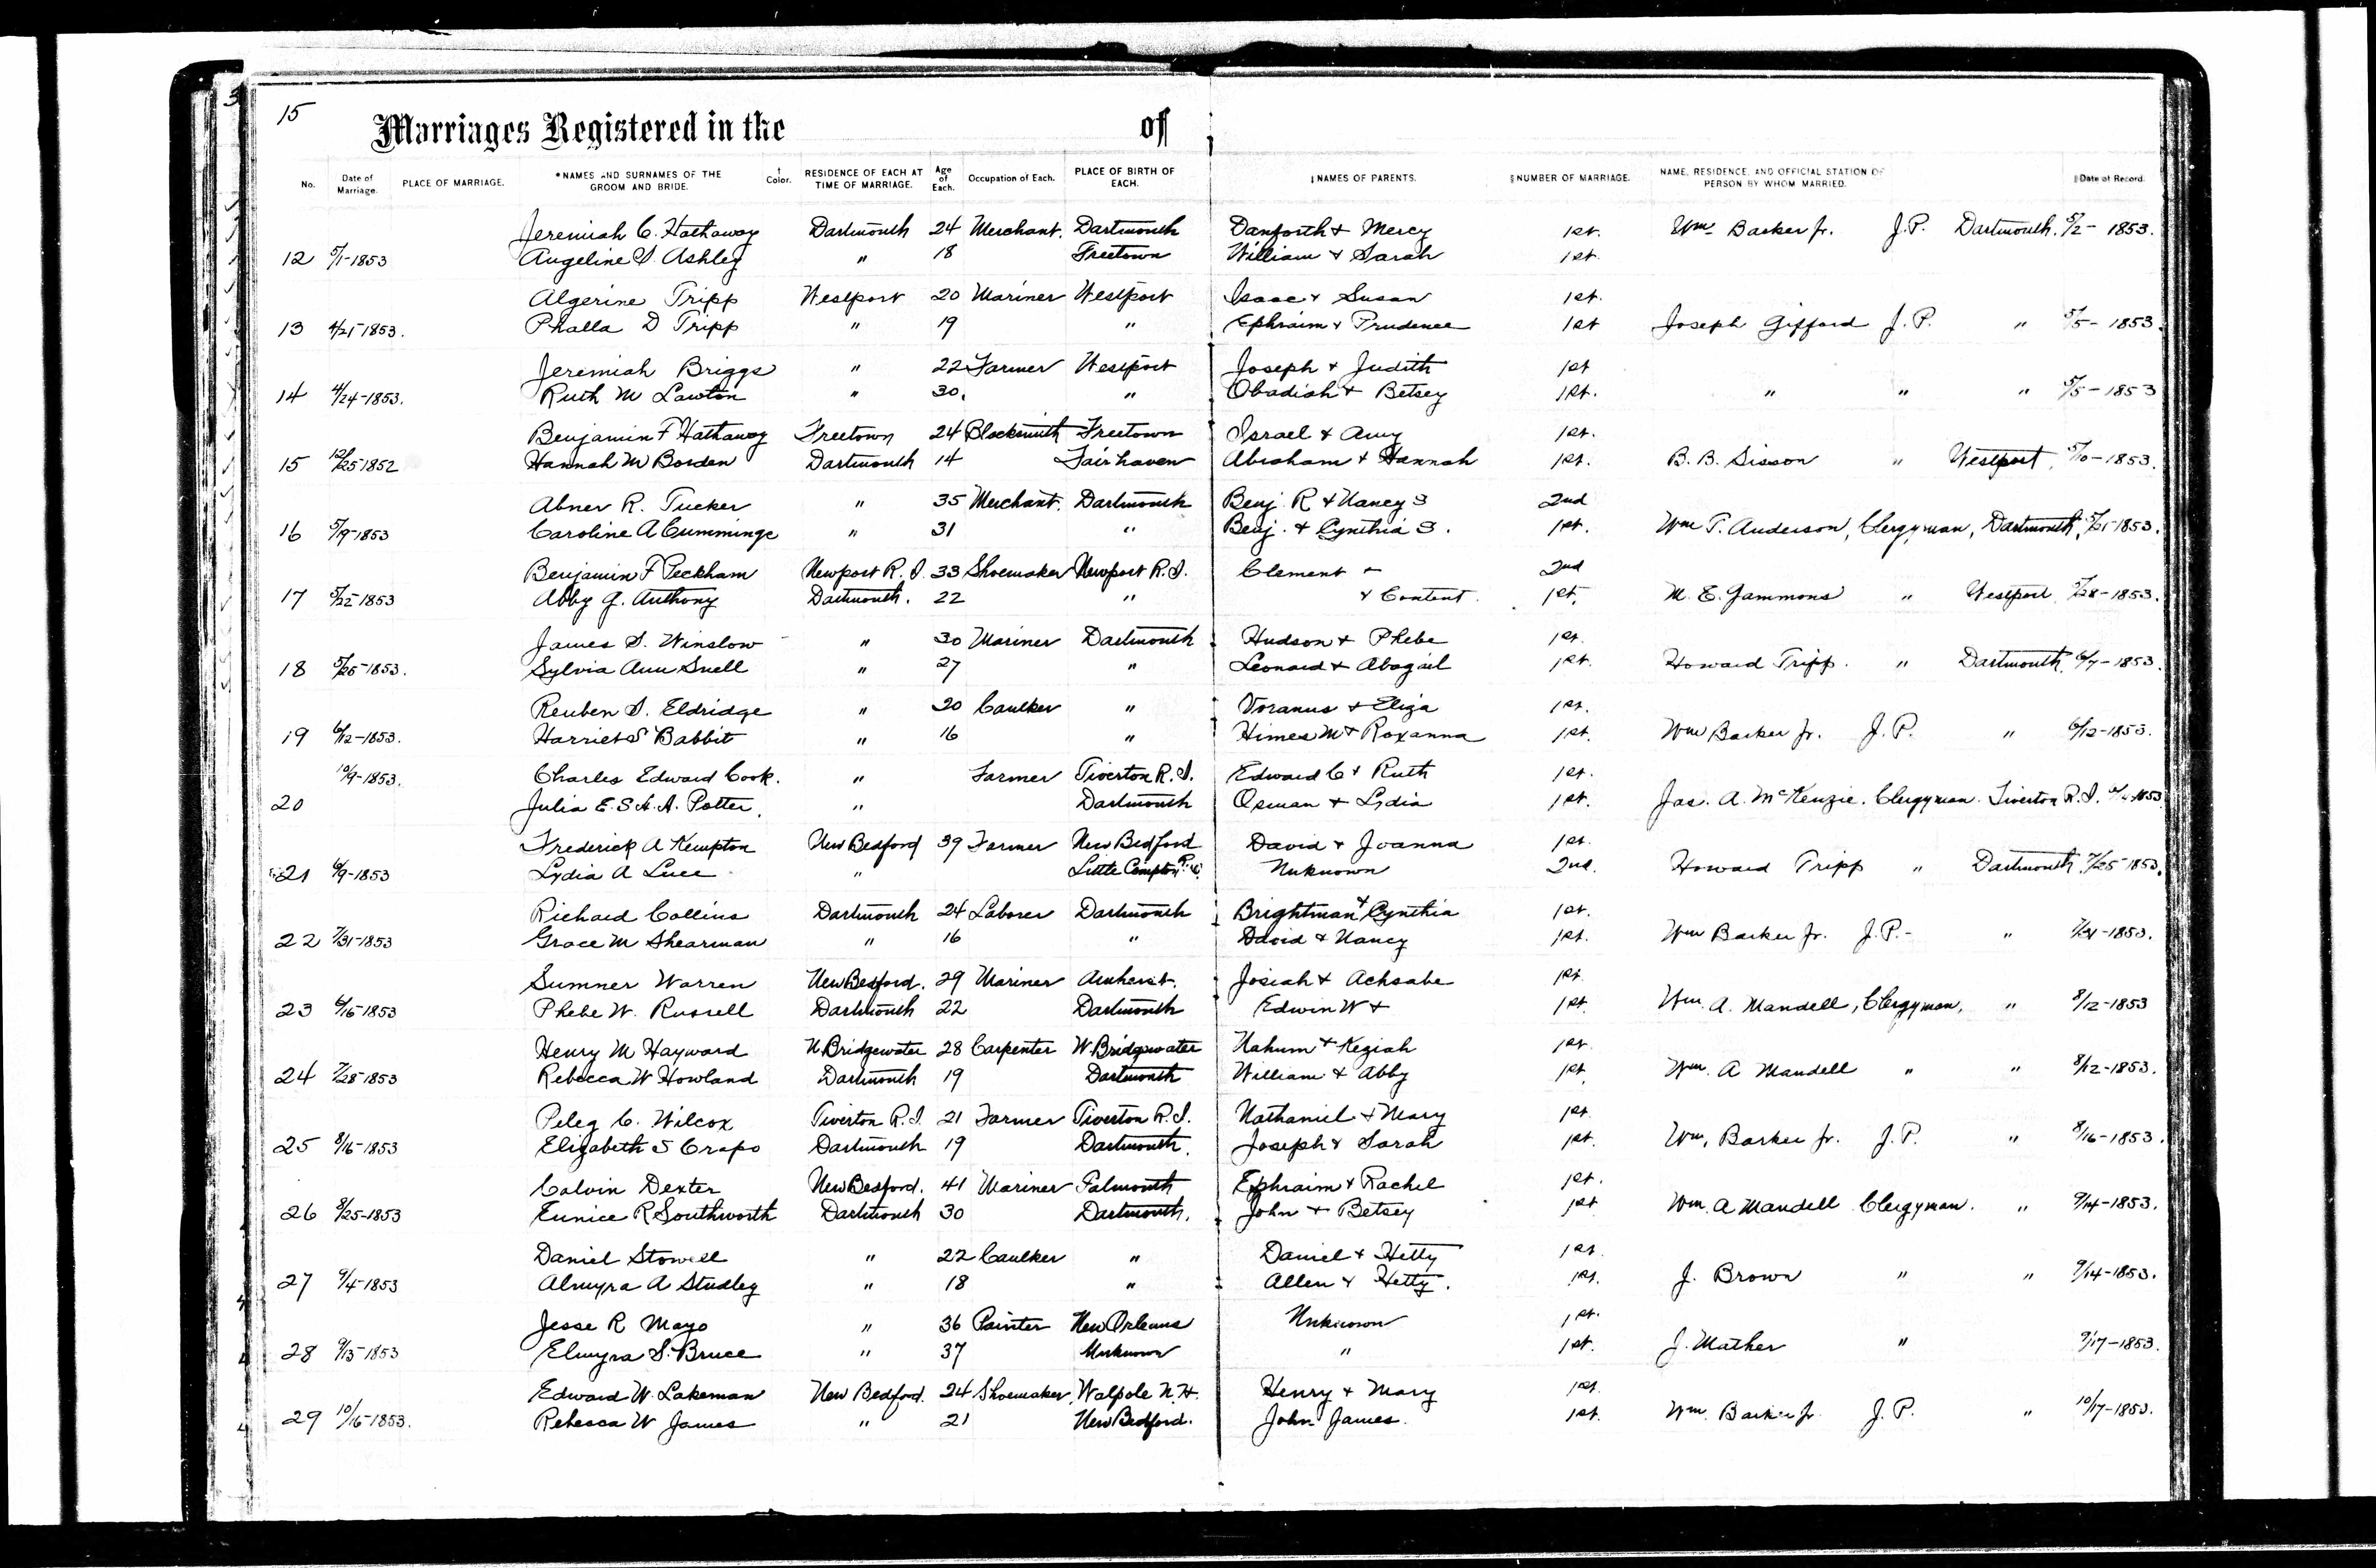 3
15
Marriages Registered in the of
No. Date of Marriage. PLACE OF MARRIAGE. *NAMES AND SURNAMES OF THE GROOM AND BRIDE. † Color. RESIDENCE OF EACH AT TIME OF MARRIAGE. Age of Each. Occupation of Each. PLACE OF BIRTH OF EACH. ‡NAMES OF PARENTS. §NUMBER OF MARRIAGE. NAME, RESIDENCE, AND OFFICIAL STATION OF PERSON BY WHOM MARRIED. ‖Date of Record.
Jeremiah C. Hathaway Dartmouth 24 Merchant. Dartmouth Danforth & Mercy 1st. Wm. Barker Jr. J.P. Dartmouth. 5/2 - 1853.
12 5/1-1853 Angeline S. Ashley " 18 Freetown William & Sarah 1st.
Algerine Tripp Westport 20 Mariner Westport Isaac & Susan 1st.
13 4/21-1853. Phalla D Tripp " 19 " Ephraim & Prudence 1st Joseph Gifford J.P. " 5/5 - 1853.
Jeremiah Briggs " 22 Farmer Westport Joseph & Judith 1st
14 4/24-1853. Ruth M Lawton " 30. " Obadiah & Betsey 1st. " " " 5/5 - 1853
Benjamin F Hathaway Freetown 24 Blacksmith Freetown Israel & Amy 1st.
15 12/25 1852 Hannah M Borden Dartmouth 14 Fairhaven Abraham & Hannah 1st. B. B. Sisson " Westport, 5/10 - 1853.
Abner R. Tucker " 35 Merchant. Dartmouth Benj. R & Nancy S 2nd
16 5/19-1853 Caroline A Cummings " 31 " Benj. & Cynthia S. 1st. Wm T. Anderson, Clergyman, Dartmouth, 5/21-1853.
Benjamin F Peckham Newport R.I. 33 Shoemaker Newport R.I. Clement & 2nd
17 5/22-1853 Abby G. Anthony Dartmouth. 22 " & Content. 1st. M. E. Gammons " Westport 5/28-1853.
James S. Winslow " 30 Mariner Dartmouth Hudson & Phebe 1st.
18 5/25-1853. Sylvia Ann Snell " 27 " Leonard & Abagail 1st. Howard Tripp. " Dartmouth, 6/7-1853.
Reuben S. Eldridge " 20 Caulker " Voranus & Eliza 1st.
19 6/12-1853. Harriet S Babbit " 16 " Himes M & Roxanna 1st. Wm Barker Jr. J.P. " 6/12-1853.
10/9-1853. Charles Edward Cook. " Farmer Tiverton R.I. Edward C & Ruth 1st.
20 Julia E. S. H. A. Potter. " Dartmouth Osman & Lydia 1st. Jas. A. McKenzie. Clergyman. Tiverton R.I. 1853
Frederick A Kempton New Bedford 39 Farmer New Bedford David & Joanna 1st.
21 6/9-1853 Lydia A Luce " Little Compton R.I. Unknown 2nd. Howard Tripp " Dartmouth, 7/25-1853.
Richard Collins Dartmouth 24 Laborer Dartmouth Brightman & Cynthia 1st.
22 7/31-1853 Grace M Shearman " 16 " David & Nancy 1st. Wm Barker Jr. J.P. - " 7/31-1853.
Sumner Warren New Bedford. 29 Mariner Amherst. Josiah & Achsabe 1st.
23 6/16-1853 Phebe W. Russell Dartmouth 22 Dartmouth Edwin W & 1st. Wm. A. Mandell, Clergyman, " 8/12-1853
Henry M Hayward N Bridgewater 28 Carpenter W. Bridgewater Nahum & Keziah 1st.
24 7/28-1853 Rebecca W Howland Dartmouth 19 Dartmouth William & Abby 1st. Wm. A Mandell " " 8/12-1853.
Peleg C. Wilcox Tiverton R.I. 21 Farmer Tiverton R.I. Nathaniel & Mary 1st.
25 8/16-1853 Elizabeth S Crapo Dartmouth 19 Dartmouth. Joseph & Sarah 1st. Wm, Barker Jr. J.P. " 8/16-1853.
Calvin Dexter New Bedford. 41 Mariner Falmouth Ephraim & Rachel 1st.
26 8/25-1853 Eunice R Southworth Dartmouth 30 Dartmouth. John & Betsey 1st Wm. A Mandell Clergyman. " 9/14-1853.
Daniel Stowell " 22 Caulker " Daniel & Hetty 1st.
27 9/4-1853 Almyra A Studley " 18 " Allen & Hetty. 1st. J. Brown " " 9/14-1853.
Jesse R Mayo " 36 Painter New Orleans Unknown 1st.
28 9/13-1853 Elmyra S. Bruce " 37 Unknown " 1st. J. Mather " 9/17-1853.
Edward W. Lakeman New Bedford. 24 Shoemaker. Walpole N.H. Henry & Mary 1st.
29 10/16-1853. Rebecca W James " 21 New Bedford. John James. 1st. Wm. Barker Jr. J.P. " 10/17-1853.